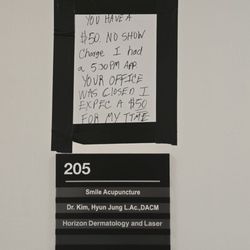 YOU HAVE A
$50. NO SHOW
Charge I had
a 5:30 PM APP.
YOUR OFFICE
WAS CLOSED I
EXPEC A $50
FOR MY TIME
205
Smile Acupuncture
Dr. Kim, Hyun Jung L.Ac.,DACM
Horizon Dermatology and Laser